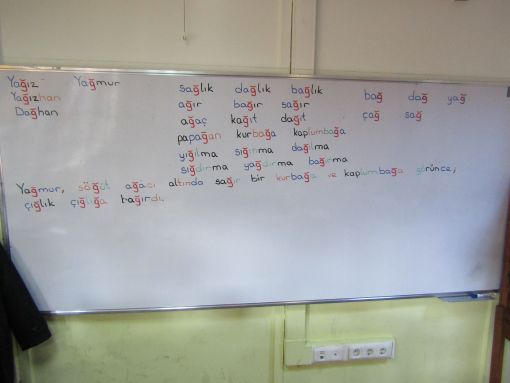 Yağız Yağmur
Yağızhan
Dağhan
sağlık dağlık bağlık
ağır bağır sağır
ağaç kağıt dağıt
papağan kurbağa kaplumbağa
yığılma sığınma dağılma
sığdırma yağdırma bağırma
bağ dağ yağ
çağ sağ
Yağmur, söğüt ağacı altında sağır bir kurbağa ve kaplumbağa görünce,
çığlık çığlığa bağırdı.